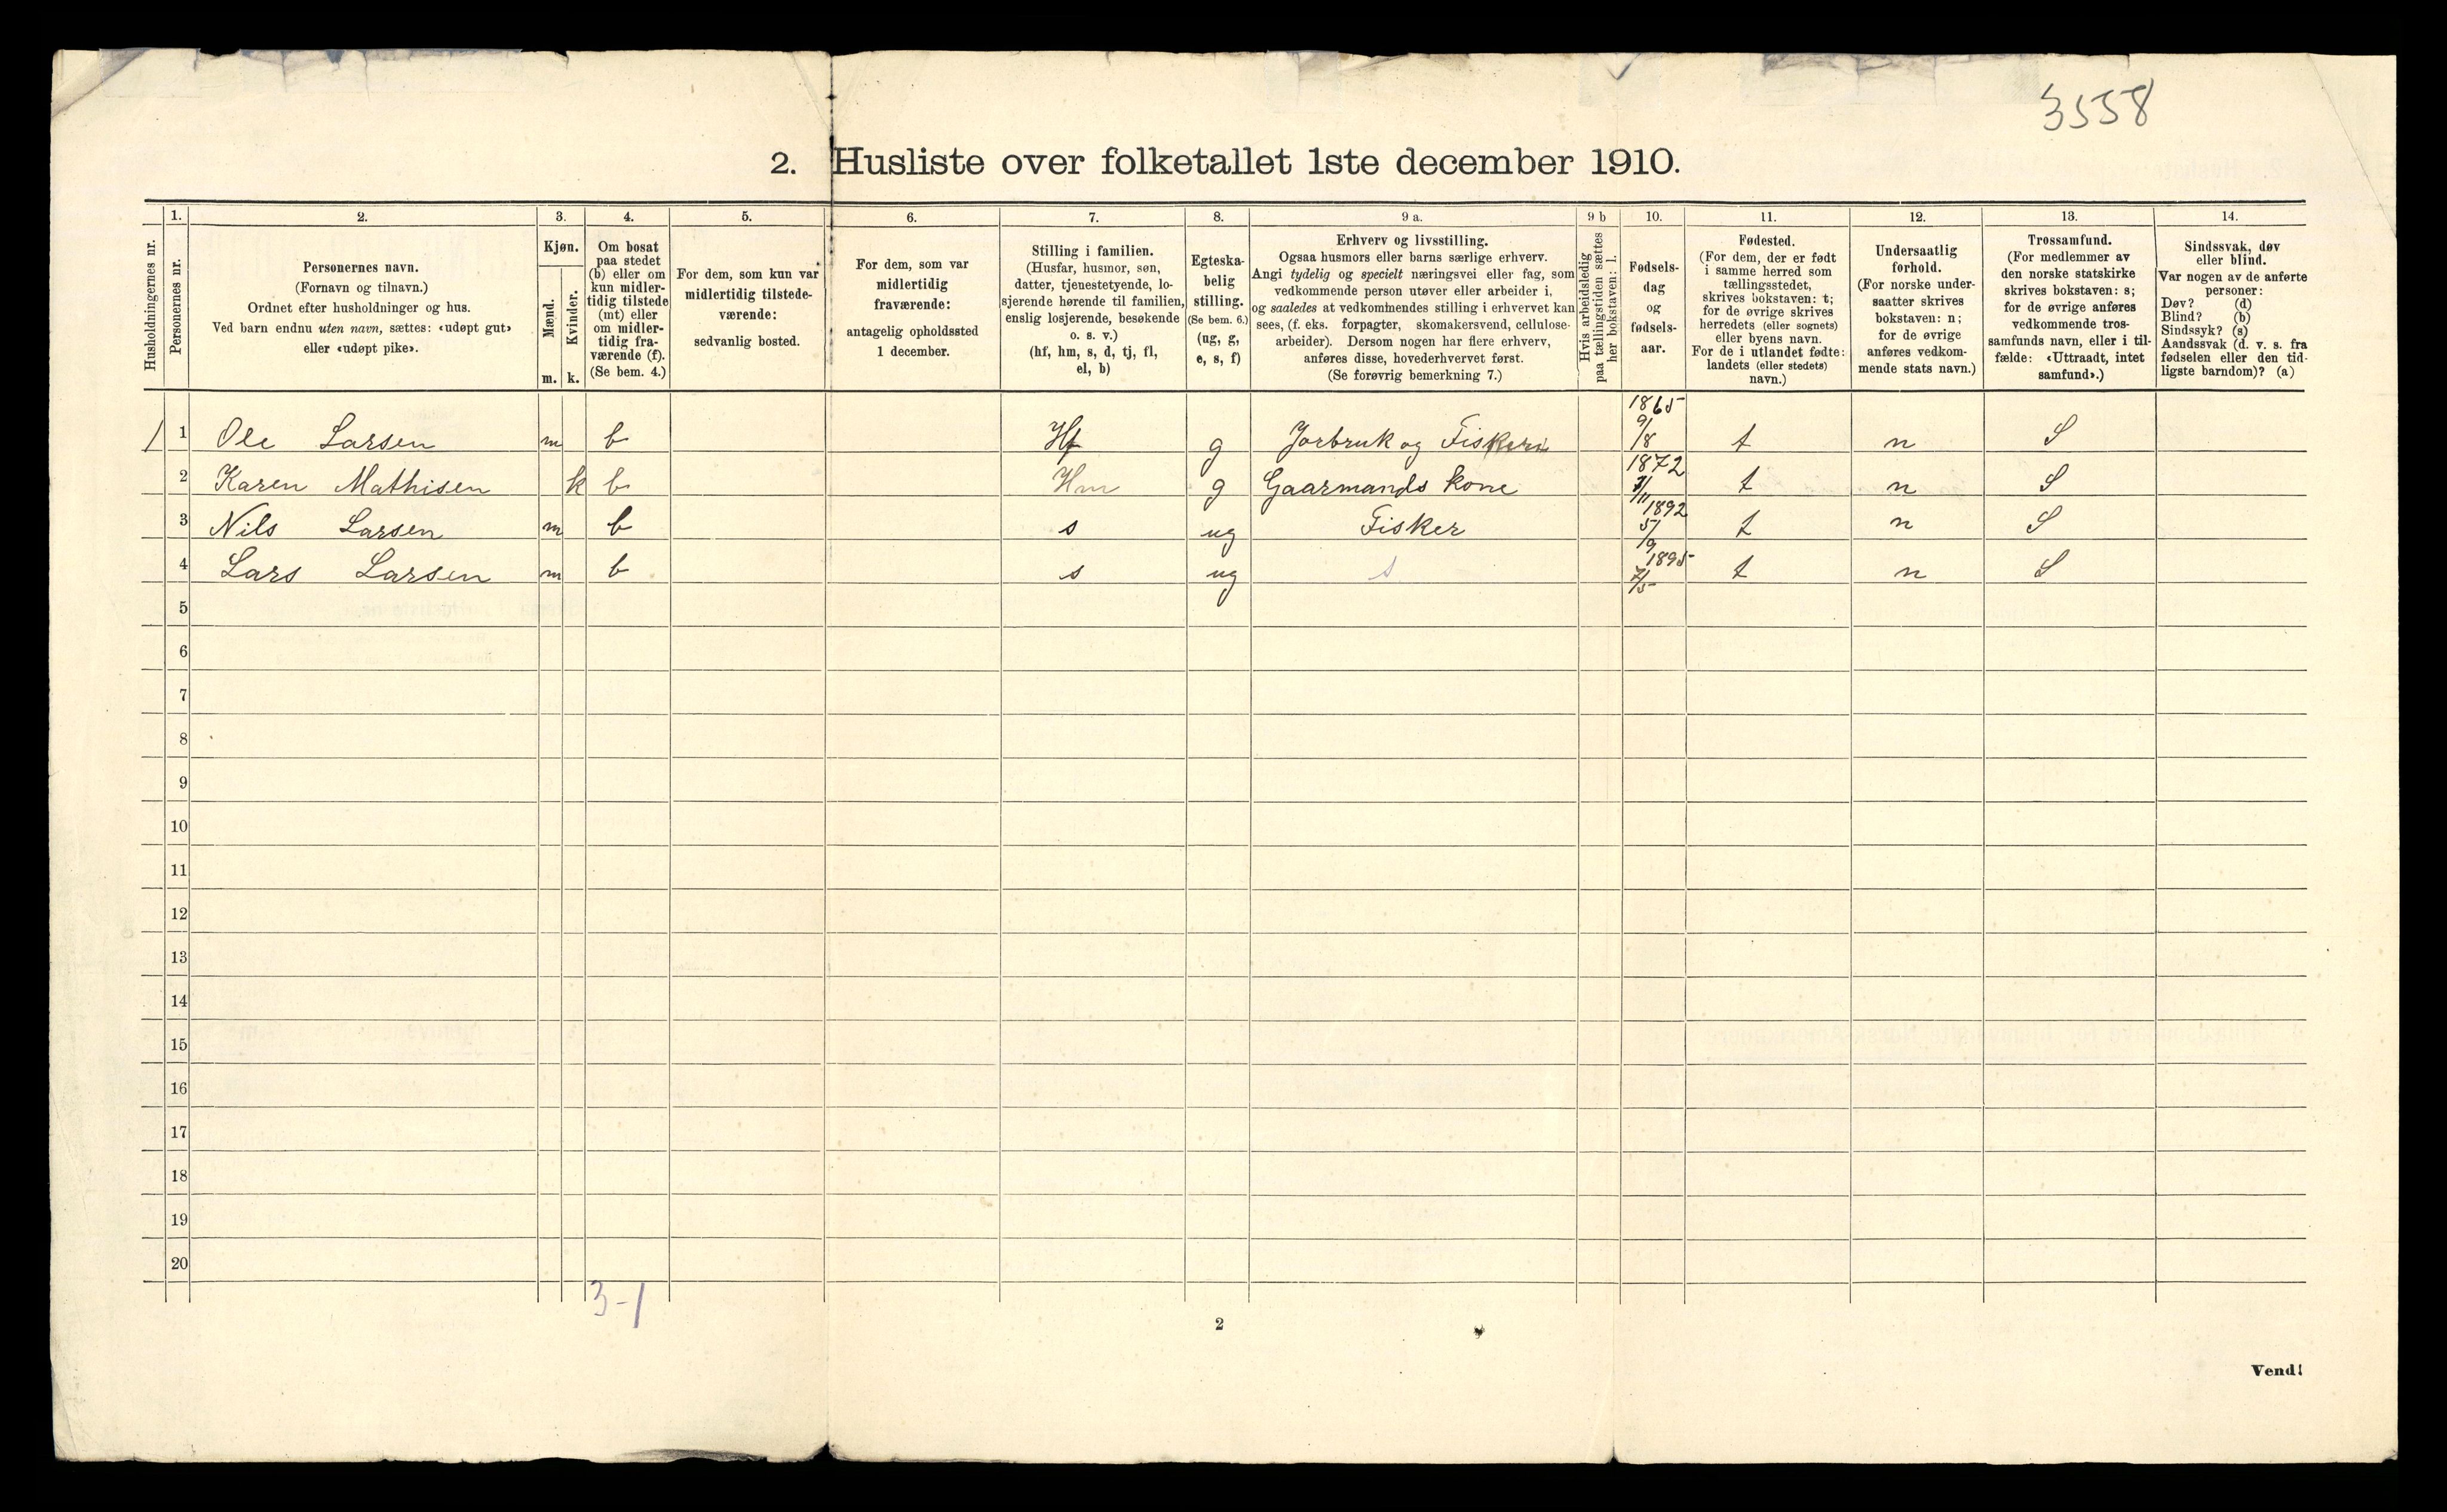 3558
2. Husliste over folketallet 1ste december 1910.
Husholdningernes nr.
1.
Personernes nr.
2.
Personernes navn.
(Fornavn og tilnavn.)
Ordnet efter husholdninger og hus.
Ved barn endnu uten navn, sættes: «udøpt gut»
eller «udøpt pike».
3.
Kjøn.
Mænd.
Kvinder.
m. k.
4.
Om bosat
paa stedet
(b) eller om
kun midler-
tidig tilstede
(mt) eller
om midler-
tidig fra-
værende (f).
(Se bem. 4.)
5.
For dem, som kun var
midlertidig tilstede-
værende:
sedvanlig bosted.
6.
For dem, som var
midlertidig
fraværende:
antagelig opholdssted
1 december.
7.
Stilling i familien.
(Husfar, husmor, søn,
datter, tjenestetyende, lo-
sjerende hørende til familien,
enslig losjerende, besøkende
o. s. v.)
(hf, hm, s, d, tj, fl,
el, b)
8.
Egteska-
belig
stilling.
(Se bem. 6.)
(ug, g,
e, s, f)
9 a.
Erhverv og livsstilling.
Ogsaa husmors eller barns særlige erhverv.
Angi tydelig og specielt næringsvei eller fag, som
vedkommende person utøver eller arbeider i,
og saaledes at vedkommendes stilling i erhvervet kan
sees, (f. eks. forpagter, skomakersvend, cellulose-
arbeider). Dersom nogen har flere erhverv,
anføres disse, hovederhvervet først.
(Se forøvrig bemerkning 7.)
9 b
Hvis arbeidsledig
paa tællingstiden sættes
her bokstaven: l.
10.
Fødsels-
dag
og
fødsels-
aar.
11.
Fødested.
(For dem, der er født
i samme herred som
tællingsstedet,
skrives bokstaven: t;
for de øvrige skrives
herredets (eller sognets)
eller byens navn.
For de i utlandet fødte:
landets (eller stedets)
navn.)
12.
Undersaatlig
forhold.
(For norske under-
saatter skrives
bokstaven: n;
for de øvrige
anføres vedkom-
mende stats navn.)
13.
Trossamfund.
(For medlemmer av
den norske statskirke
skrives bokstaven: s;
for de øvrige anføres
vedkommende tros-
samfunds navn, eller i til-
fælde: «Uttraadt, intet
samfund».)
14.
Sindssvak, døv
eller blind.
Var nogen av de anførte
personer:
Døv? (d)
Blind? (b)
Sindssyk? (s)
Aandssvak (d. v. s. fra
fødselen eller den tid-
ligste barndom)? (a)
1 1 Ole Larsen m b Hf g Jorbruk og Fiskeri 1865 9/8 t n S
2 Karen Mathisen k b Hm g Gaarmands kone 1872 /11 t n S
3 Nils Larsen m b s ug Fisker 1892 5/9 t n S
4 Lars Larsen m b s ug s 1895 7/5 t n S
5
6
7
8
9
10
11
12
13
14
15
16
17
18
19
20
3-1
2
Vend!